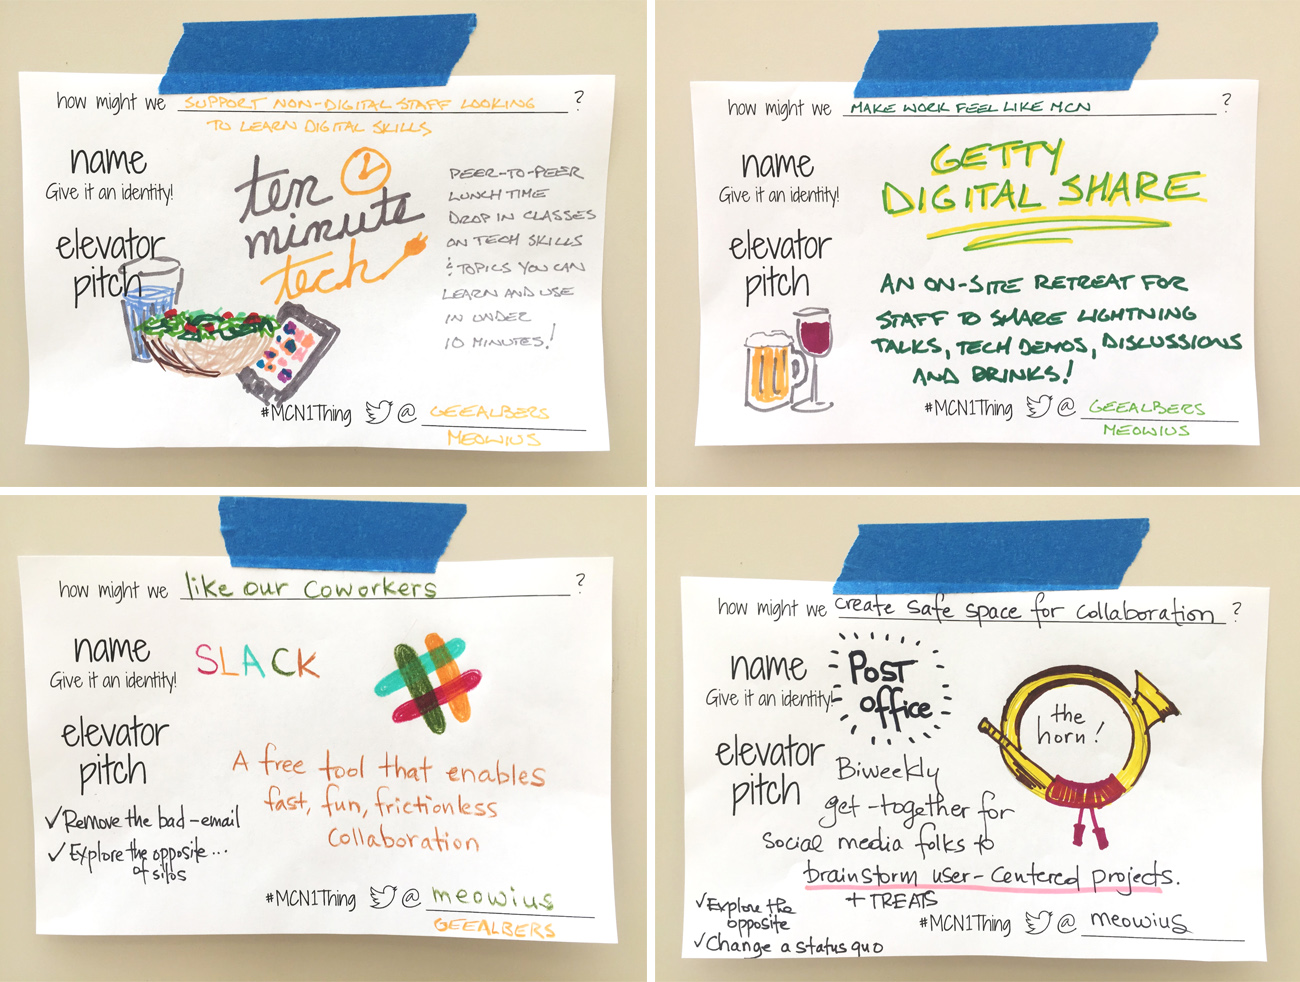 how might we SUPPORT NON-DIGITAL STAFF LOOKING ?
TO LEARN DIGITAL SKILLS
name
Give it an identity!
elevator
pitch
ten
minute
tech
PEER-TO-PEER
LUNCH TIME
DROP IN CLASSES
ON TECH SKILLS
& TOPICS YOU CAN
LEARN AND USE
IN UNDER
10 MINUTES!
#MCN1Thing @ GEEALBERS
MEOWIUS
how might we MAKE WORK FEEL LIKE MCN ?
name
Give it an identity!
GETTY
DIGITAL SHARE
elevator
pitch
AN ON-SITE RETREAT FOR
STAFF TO SHARE LIGHTNING
TALKS, TECH DEMOS, DISCUSSIONS
AND DRINKS!
#MCN1Thing @ GEEALBERS
MEOWIUS
how might we like our coworkers ?
name
Give it an identity!
SLACK
elevator
pitch
A free tool that enables
fast, fun, frictionless
Collaboration
✓Remove the bad-email
✓ Explore the opposite...
of silos
#MCN1Thing @ meowius
GEEALBERS
how might we create safe space for collaboration ?
name
Give it an identity!
Post
office
the
horn!
elevator
pitch
Biweekly
get-together for
Social media folks to
brainstorm user-centered projects.
+ TREATS
✓Explore the
opposite
✓Change a status quo
#MCN1Thing @ meowius